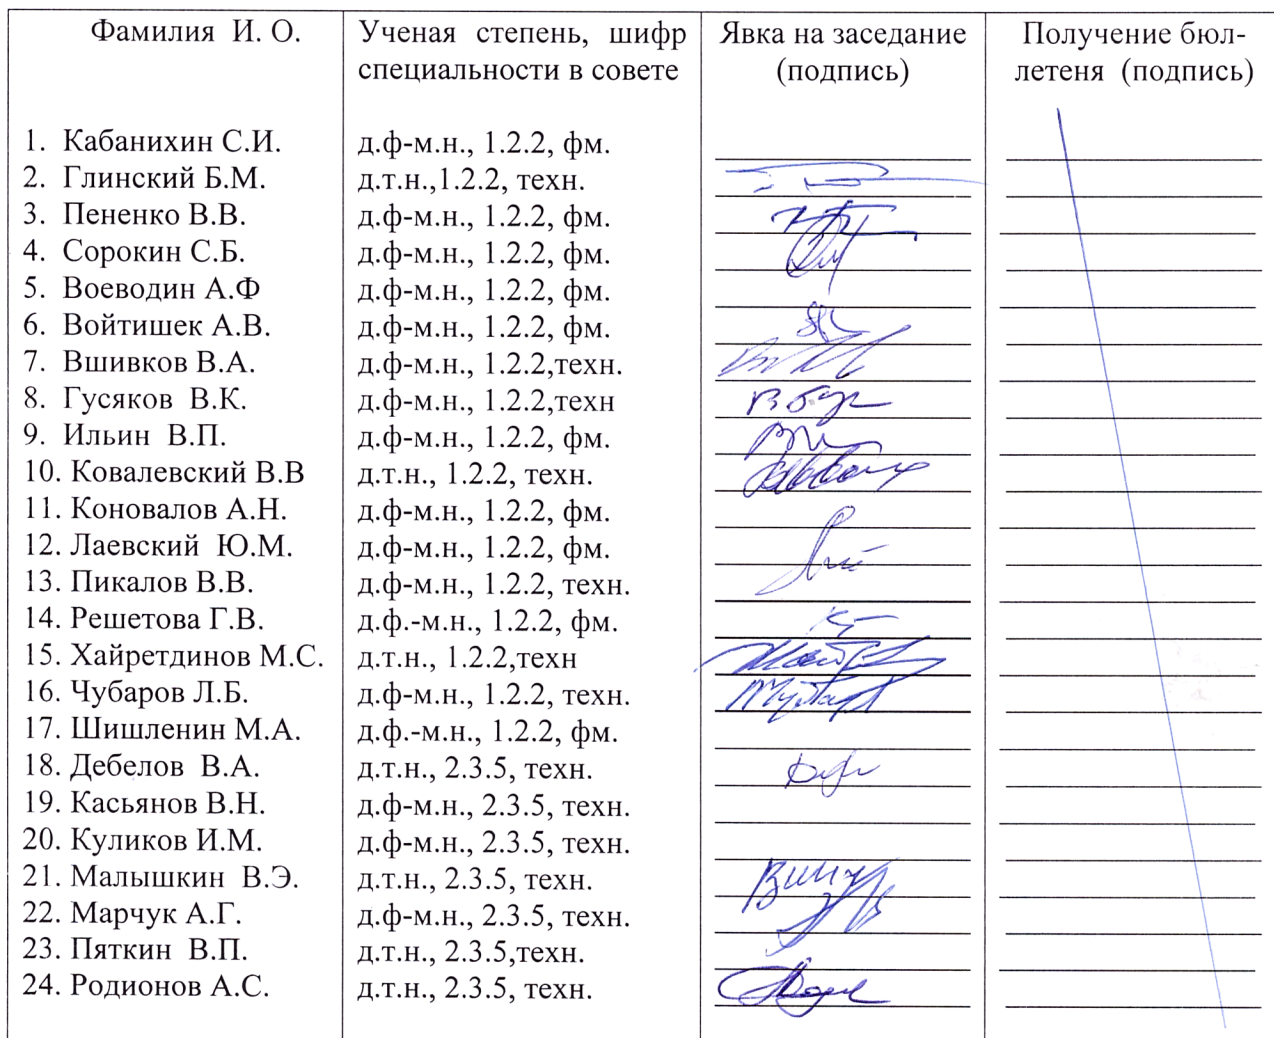 Фамилия И. О.
Ученая степень, шифр
специальности в совете
Явка на заседание
(подпись)
Получение бюл-
летеня (подпись)
1. Кабанихин С.И. д.ф-м.н., 1.2.2, фм.
2. Глинский Б.М. д.т.н.,1.2.2, техн.
3. Пененко В.В. д.ф-м.н., 1.2.2, фм.
4. Сорокин С.Б. д.ф-м.н., 1.2.2, фм.
5. Воеводин А.Ф д.ф-м.н., 1.2.2, фм.
6. Войтишек А.В. д.ф-м.н., 1.2.2, фм.
7. Вшивков В.А. д.ф-м.н., 1.2.2,техн.
8. Гусяков В.К. д.ф-м.н., 1.2.2,техн
9. Ильин В.П. д.ф-м.н., 1.2.2, фм.
10. Ковалевский В.В д.т.н., 1.2.2, техн.
11. Коновалов А.Н. д.ф-м.н., 1.2.2, фм.
12. Лаевский Ю.М. д.ф-м.н., 1.2.2, фм.
13. Пикалов В.В. д.ф-м.н., 1.2.2, техн.
14. Решетова Г.В. д.ф.-м.н., 1.2.2, фм.
15. Хайретдинов М.С. д.т.н., 1.2.2,техн
16. Чубаров Л.Б. д.ф-м.н., 1.2.2, техн.
17. Шишленин М.А. д.ф.-м.н., 1.2.2, фм.
18. Дебелов В.А. д.т.н., 2.3.5, техн.
19. Касьянов В.Н. д.ф-м.н., 2.3.5, техн.
20. Куликов И.М. д.ф-м.н., 2.3.5, техн.
21. Малышкин В.Э. д.т.н., 2.3.5, техн.
22. Марчук А.Г. д.ф-м.н., 2.3.5, техн.
23. Пяткин В.П. д.т.н., 2.3.5,техн.
24. Родионов А.С. д.т.н., 2.3.5, техн.